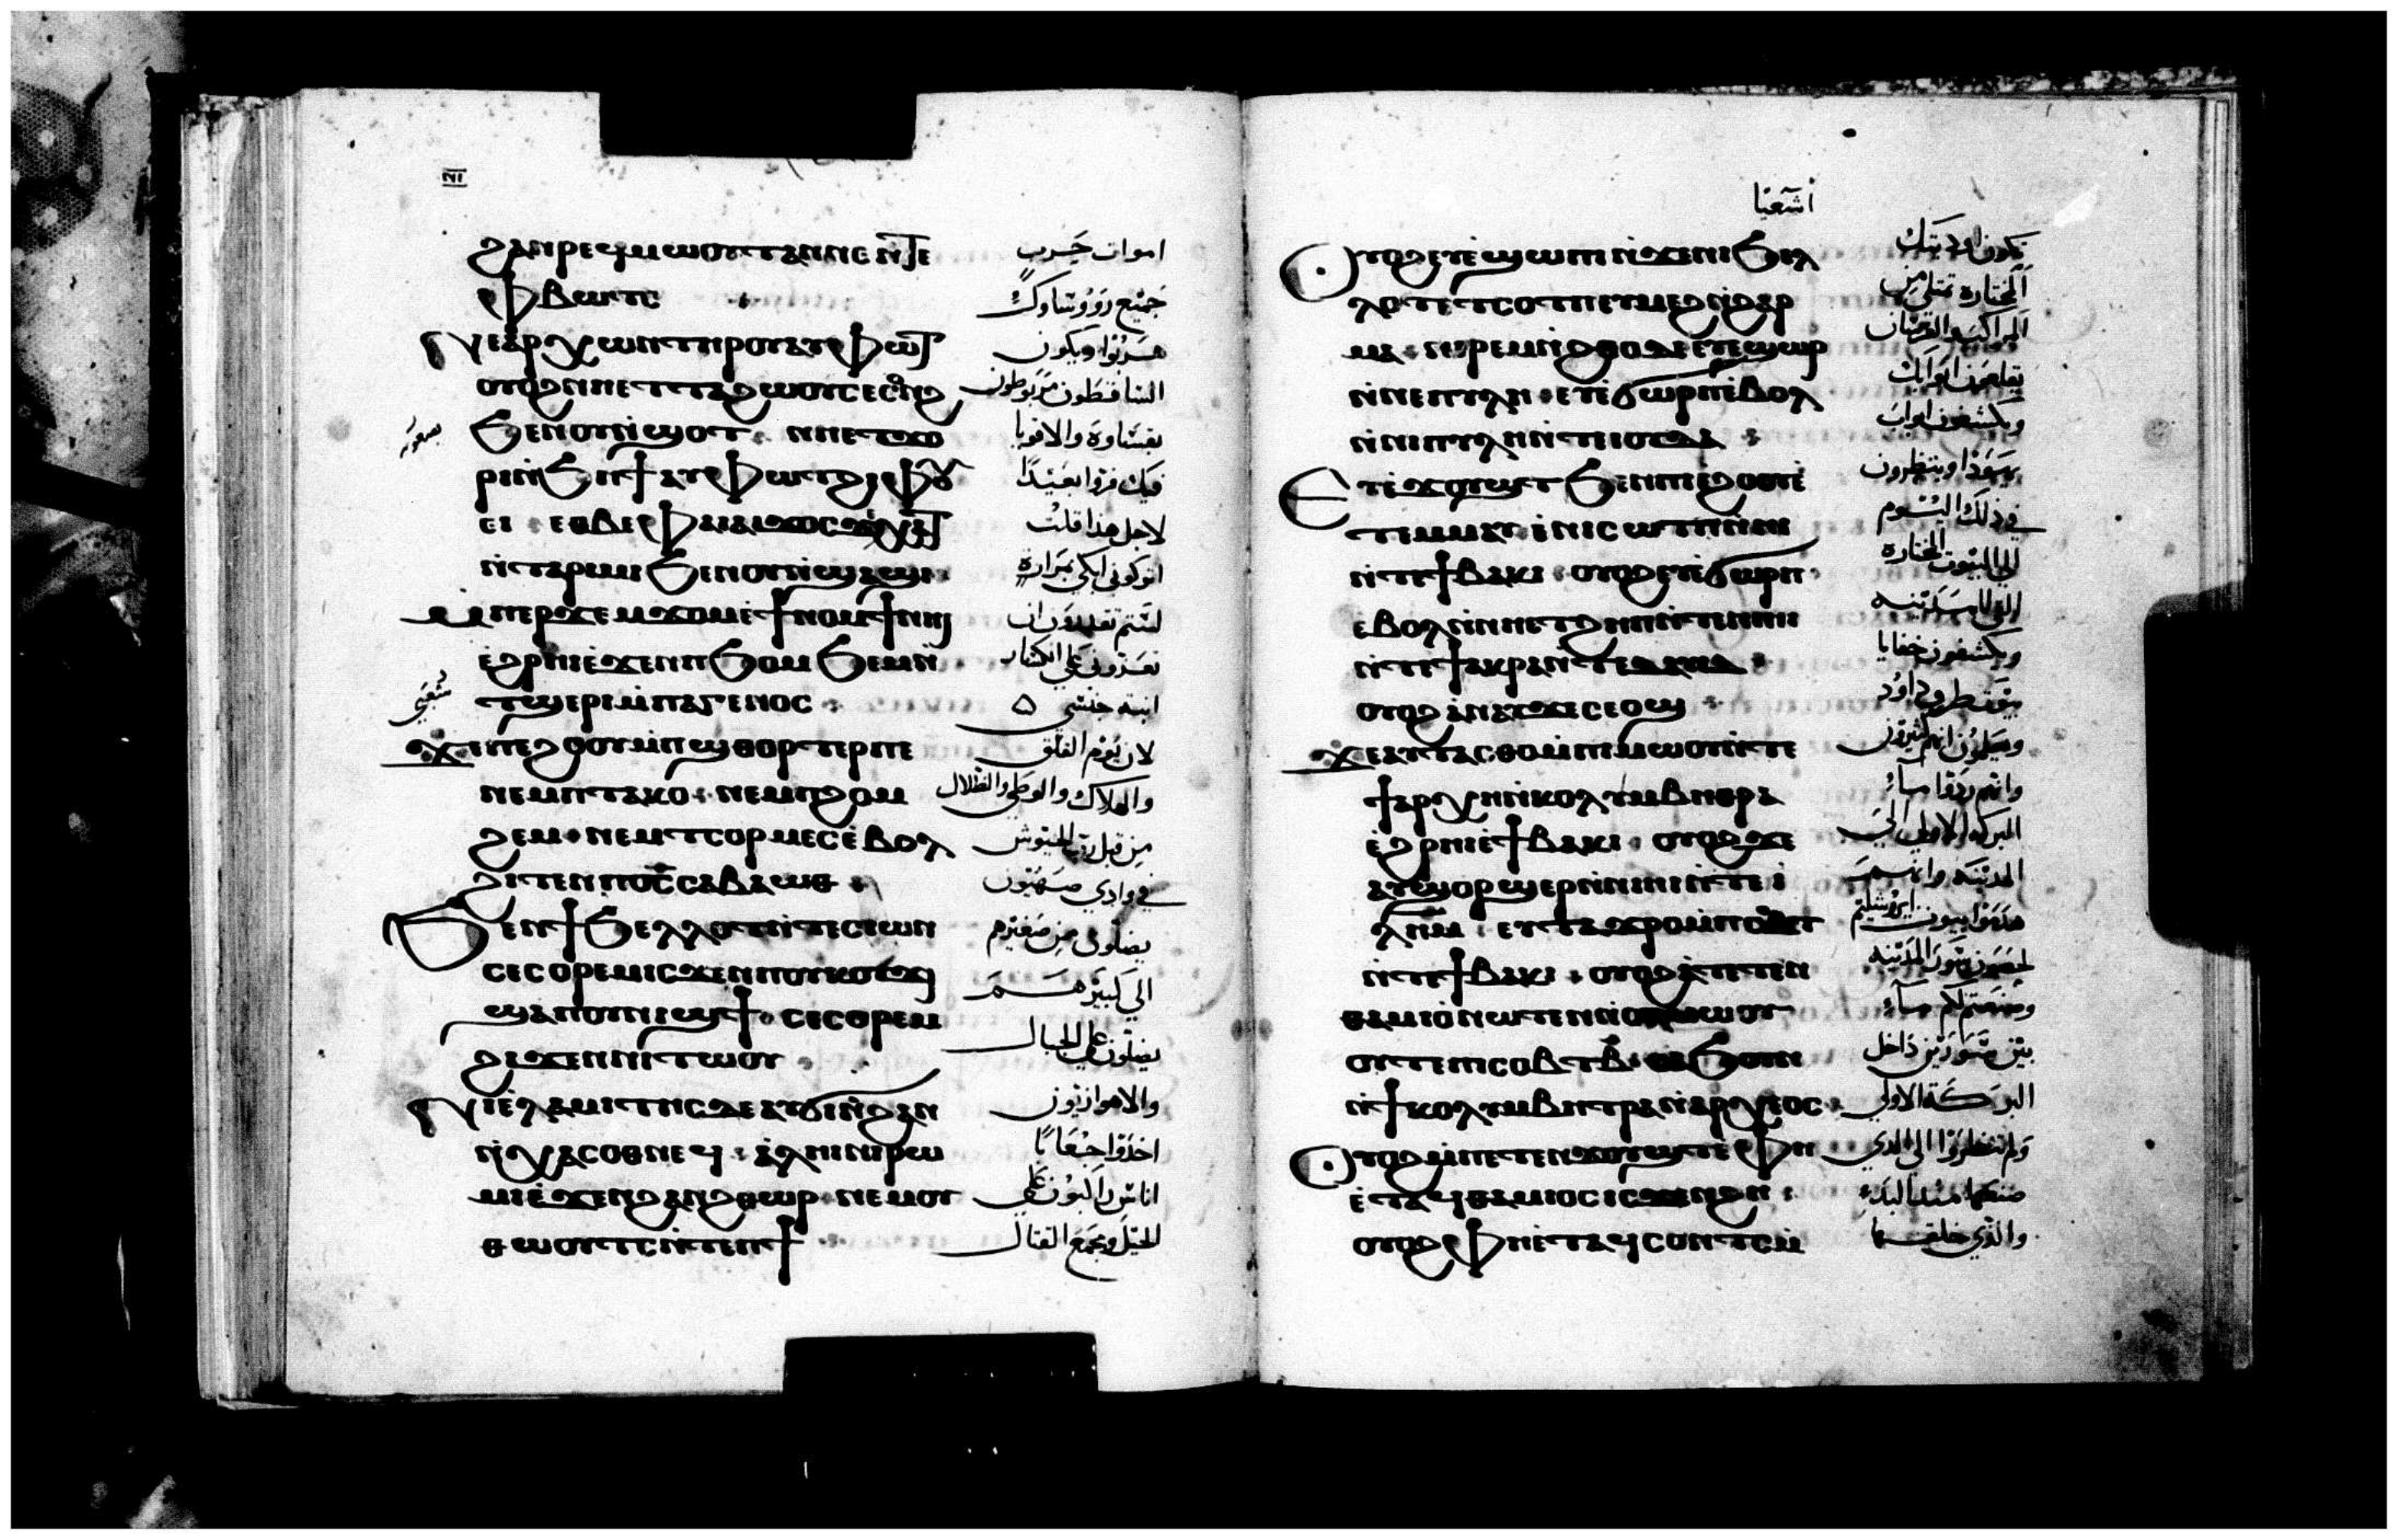 ⲛ̅ⲓ̅
ϩⲁⲛⲣⲉϥⲙⲱⲟⲩⲧ ⲁⲛ ⲛⲉ ⲛ̀ⲧⲉ
ⲫⲃⲱⲧⲥ
ⲛⲉⲁⲣⲭⲱⲛ ⲧⲏⲣⲟⲩ ⲁⲩⲫⲱⲧ
ⲟⲩⲟϩ ⲛⲏ ⲉⲧⲧⲁϩⲱⲟⲩ ⲥⲉⲥⲟⲛϩ
ϧⲉⲛ ⲟⲩⲛ̀ϣⲟⲧ ⲛⲏ ⲉⲧϫⲟ
ⲣⲓ ⲛ̀ϧⲏϯ ⲁⲩⲫⲱⲧ ϩⲓⲫⲟⲩ
ⲉⲓ ⲉⲑⲃⲉ ⲫⲁⲓ ⲁⲓϫⲟⲥ ϫⲉ ⲭⲁⲧ
ⲛ̀ⲧⲁⲣⲓⲙⲓ ϧⲉⲛ ⲟⲩⲛ̀ϣⲁϣⲓ
ⲙ̀ⲡⲉⲣϫⲉⲙϫⲟⲙ ⲉ̀ϯⲛⲟⲙϯ ⲛⲏⲓ
ⲉ̀ϩⲣⲏⲓ ⲉ̀ϫⲉⲛ ⲡϧⲟⲙϧⲉⲙ ⲛ̀
ⲧϣⲉⲣⲓ ⲙ̀ⲡⲁⲅⲉⲛⲟⲥ
ϫⲉ ⲡⲉϩⲟⲟⲩ ⲙ̀ⲡϣⲑⲟⲣⲧⲉⲣ ⲡⲉ
ⲛⲉⲙ ⲡⲧⲁⲕⲟ ⲛⲉⲙ ⲡϩⲟⲙ
ϩⲉⲙ ⲛⲉⲙ ⲡⲥⲟⲣⲙⲉⲥ ⲉ̀ⲃⲟⲗ
ϩⲓⲧⲉⲛ ⲡⲟ̅ⲥ̅ ⲥⲁⲃⲁⲱⲑ
ϧⲉⲛ ϯϧⲉⲗⲗⲟⲧ ⲛ̀ⲧⲉ ⲥⲓⲱⲛ
ⲥⲉⲥⲟⲣⲉⲙ ⲓⲥϫⲉⲛ ⲡⲟⲩⲕⲟⲩϫⲓ
ϣⲁ ⲡⲟⲩⲛⲓϣϯ ⲥⲉⲥⲟⲣⲉⲙ
ϩⲓϫⲉⲛ ⲛⲓⲧⲱⲟⲩ
ⲛⲓⲉ̀ⲗⲁⲙⲓⲧⲏⲥ ⲇⲉ ⲁⲩϭⲓ ⲛ̀ϩⲁⲛ
ⲛ̀ⲭⲁⲥⲟⲑⲛⲉϥ ⲁ̀ⲗⲏⲓ ⲛⲓⲣⲱ
ⲙⲓ ⲉ̀ϫⲉⲛ ϩⲁⲛϩⲑⲱⲣ ⲛⲉⲙ ⲟⲩ
ⲑⲱⲟⲩⲧⲥ ⲛ̀ⲧⲉ ⲡϯ
اموات حرب
جميع رووساوك
هربوا ويكون
الساقطون مربوطون
بقساوة والاقويا
فيك فروا بعيدا
لاجل هذا قلت
اتركوني ابكي بمرارة
لستم تقدرون ان
تعزوني علي انكسار
ابنة جنسي
لان يوم القلق
والهلاك والوطي والضلال
من قبل رب الجيوش
في وادي صهيون
يضلون من صغيرهم
الي كبيرهم
يضلون علي الجبال
والاهوازيون
اخذوا جعابا
اناس راكبون علي
الخيل وجمع القتال
أشعيا
ⲟⲩⲟϩ ⲉⲩⲉ̀ϣⲱⲡⲓ ⲛ̀ϫⲉ ⲛⲓϧⲉⲗ
ⲗⲟⲧ ⲉⲧⲥⲟⲧⲡ ⲉⲩⲙⲉϩ ⲛ̀ϩⲁⲣ
ⲙⲁ ⲛⲓⲣⲉⲙⲛ̀ϩⲑⲟ ⲇⲉ ⲉⲩⲉ̀ϣⲱⲣ
ⲛ̀ⲛⲉⲡⲩⲗⲏ ⲉⲩⲉ̀ϭⲱⲣⲡ ⲉ̀ⲃⲟⲗ
ⲛ̀ⲛⲓⲡⲩⲗⲏ ⲛ̀ⲧⲉ ⲓⲟⲩⲇⲁ
ⲉⲩⲉ̀ϫⲟⲩϣⲧ ϧⲉⲛ ⲡⲓⲉ̀ϩⲟⲟⲩ ⲉ̀
ⲧⲉⲙⲙⲁⲩ ⲉ̀ⲛⲓⲥⲱⲧⲡ ⲛ̀ⲏⲓ
ⲛ̀ⲧⲉ ϯⲃⲁⲕⲓ ⲟⲩⲟϩ ⲉⲩⲉ̀ϭⲱⲣⲡ
ⲉ̀ⲃⲟⲗ ⲛ̀ⲛⲏ ⲉⲧϩⲏⲡ ⲛ̀ⲧⲉ ⲛⲓⲏⲓ
ⲛ̀ⲧⲉ ϯⲁⲕⲣⲁ ⲛ̀ⲧⲉ ⲇⲁⲩⲓⲇ
ⲟⲩⲟϩ ⲁ̀ⲛⲁⲩ ϫⲉ ⲥⲉⲟϣ
ϫⲉ ⲁⲩⲧⲁⲥⲑⲟ ⲙ̀ⲡⲓⲙⲱⲟⲩ ⲛ̀ⲧⲉ
ϯⲁⲣⲭⲏ ⲛ̀ⲕⲟⲗⲩⲙⲃⲏⲑⲣⲁ
ⲉ̀ϩⲣⲏⲓ ⲉ̀ϯⲃⲁⲕⲓ ⲟⲩⲟϩ ϫⲉ
ⲁⲩϣⲟⲣϣⲉⲣ ⲛ̀ⲛⲓⲏⲓ ⲛ̀ⲧⲉ ⲓ̀
ⲗ̅ⲏ̅ⲙ̅ ⲉⲩⲧⲁϫⲣⲟ ⲙ̀ⲡⲥⲟⲃⲧ
ⲛ̀ⲧⲉ ϯⲃⲁⲕⲓ ⲟⲩⲟϩ ⲁ̀ⲧⲉⲧⲉⲛ
ⲑⲁⲙⲓⲟ ⲛⲱⲧⲉⲛ ⲛ̀ⲟⲩⲙⲱⲟⲩ
ⲟⲩⲧⲉ ⲡⲓⲥⲟⲃⲧ ⲃ̅ ⲥⲁϧⲟⲩⲛ
ⲛ̀ϯⲕⲟⲗⲩⲙⲃⲏⲧⲣⲁ ⲛ̀ⲁⲣⲭⲉⲟⲥ
ⲟⲩⲟϩ ⲙ̀ⲡⲉⲧⲉⲛϫⲟⲩϣⲧ ⲉ̀ⲫⲏ
ⲉ̀ⲧⲁϥⲑⲁⲙⲓⲟⲥ ⲓⲥϫⲉⲛ ϩⲏ
ⲟⲩⲟϩ ⲫⲏ ⲉ̀ⲧⲁϥⲥⲟⲛⲧⲥ
تكون اوديتك
المختارة تمتلي من
المراكب والفرسان
يقلعون ابوابك
ويكشفون ابواب
يهوذا وينظرون
في ذلك اليوم
الي البيوت المختارة
التي للمدينة
ويكشفون خفايا
داود
ويعلمون انهم كثيرون
وانهم ردوا ماء
البركة الاولي الي
المدينة وانهم
هدموا بيوت ايروشليم
المدينة
وصنعتم لكم ماء
بين سورين داخل
البركة الاولي
ولم تنظروا الي الذي
صنعها منذ البدء
والذي خلقها